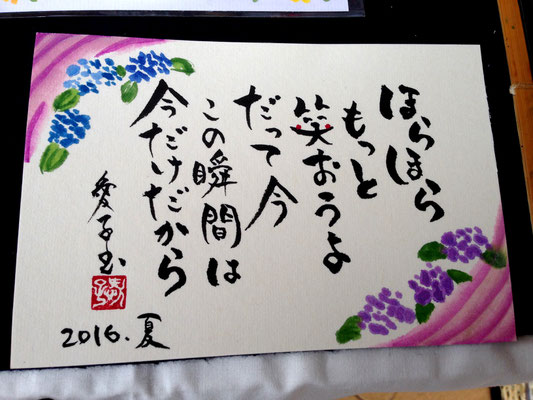 ほらほら
もっと
笑おうよ
だって今
この瞬間は
今だけだから
愛子書
2016.夏